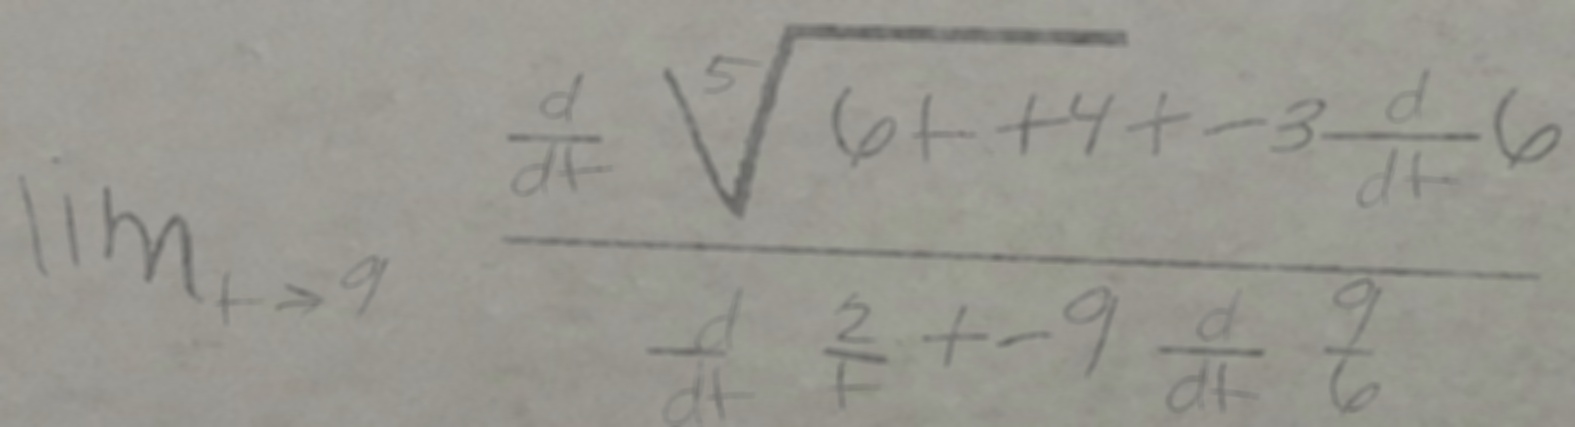 \lim_{t \to 9} \frac{\frac{d}{dt} \sqrt[5]{6t + 4} + -3 \frac{d}{dt} 6}{\frac{d}{dt} \frac{2}{t} + -9 \frac{d}{dt} \frac{9}{6}}